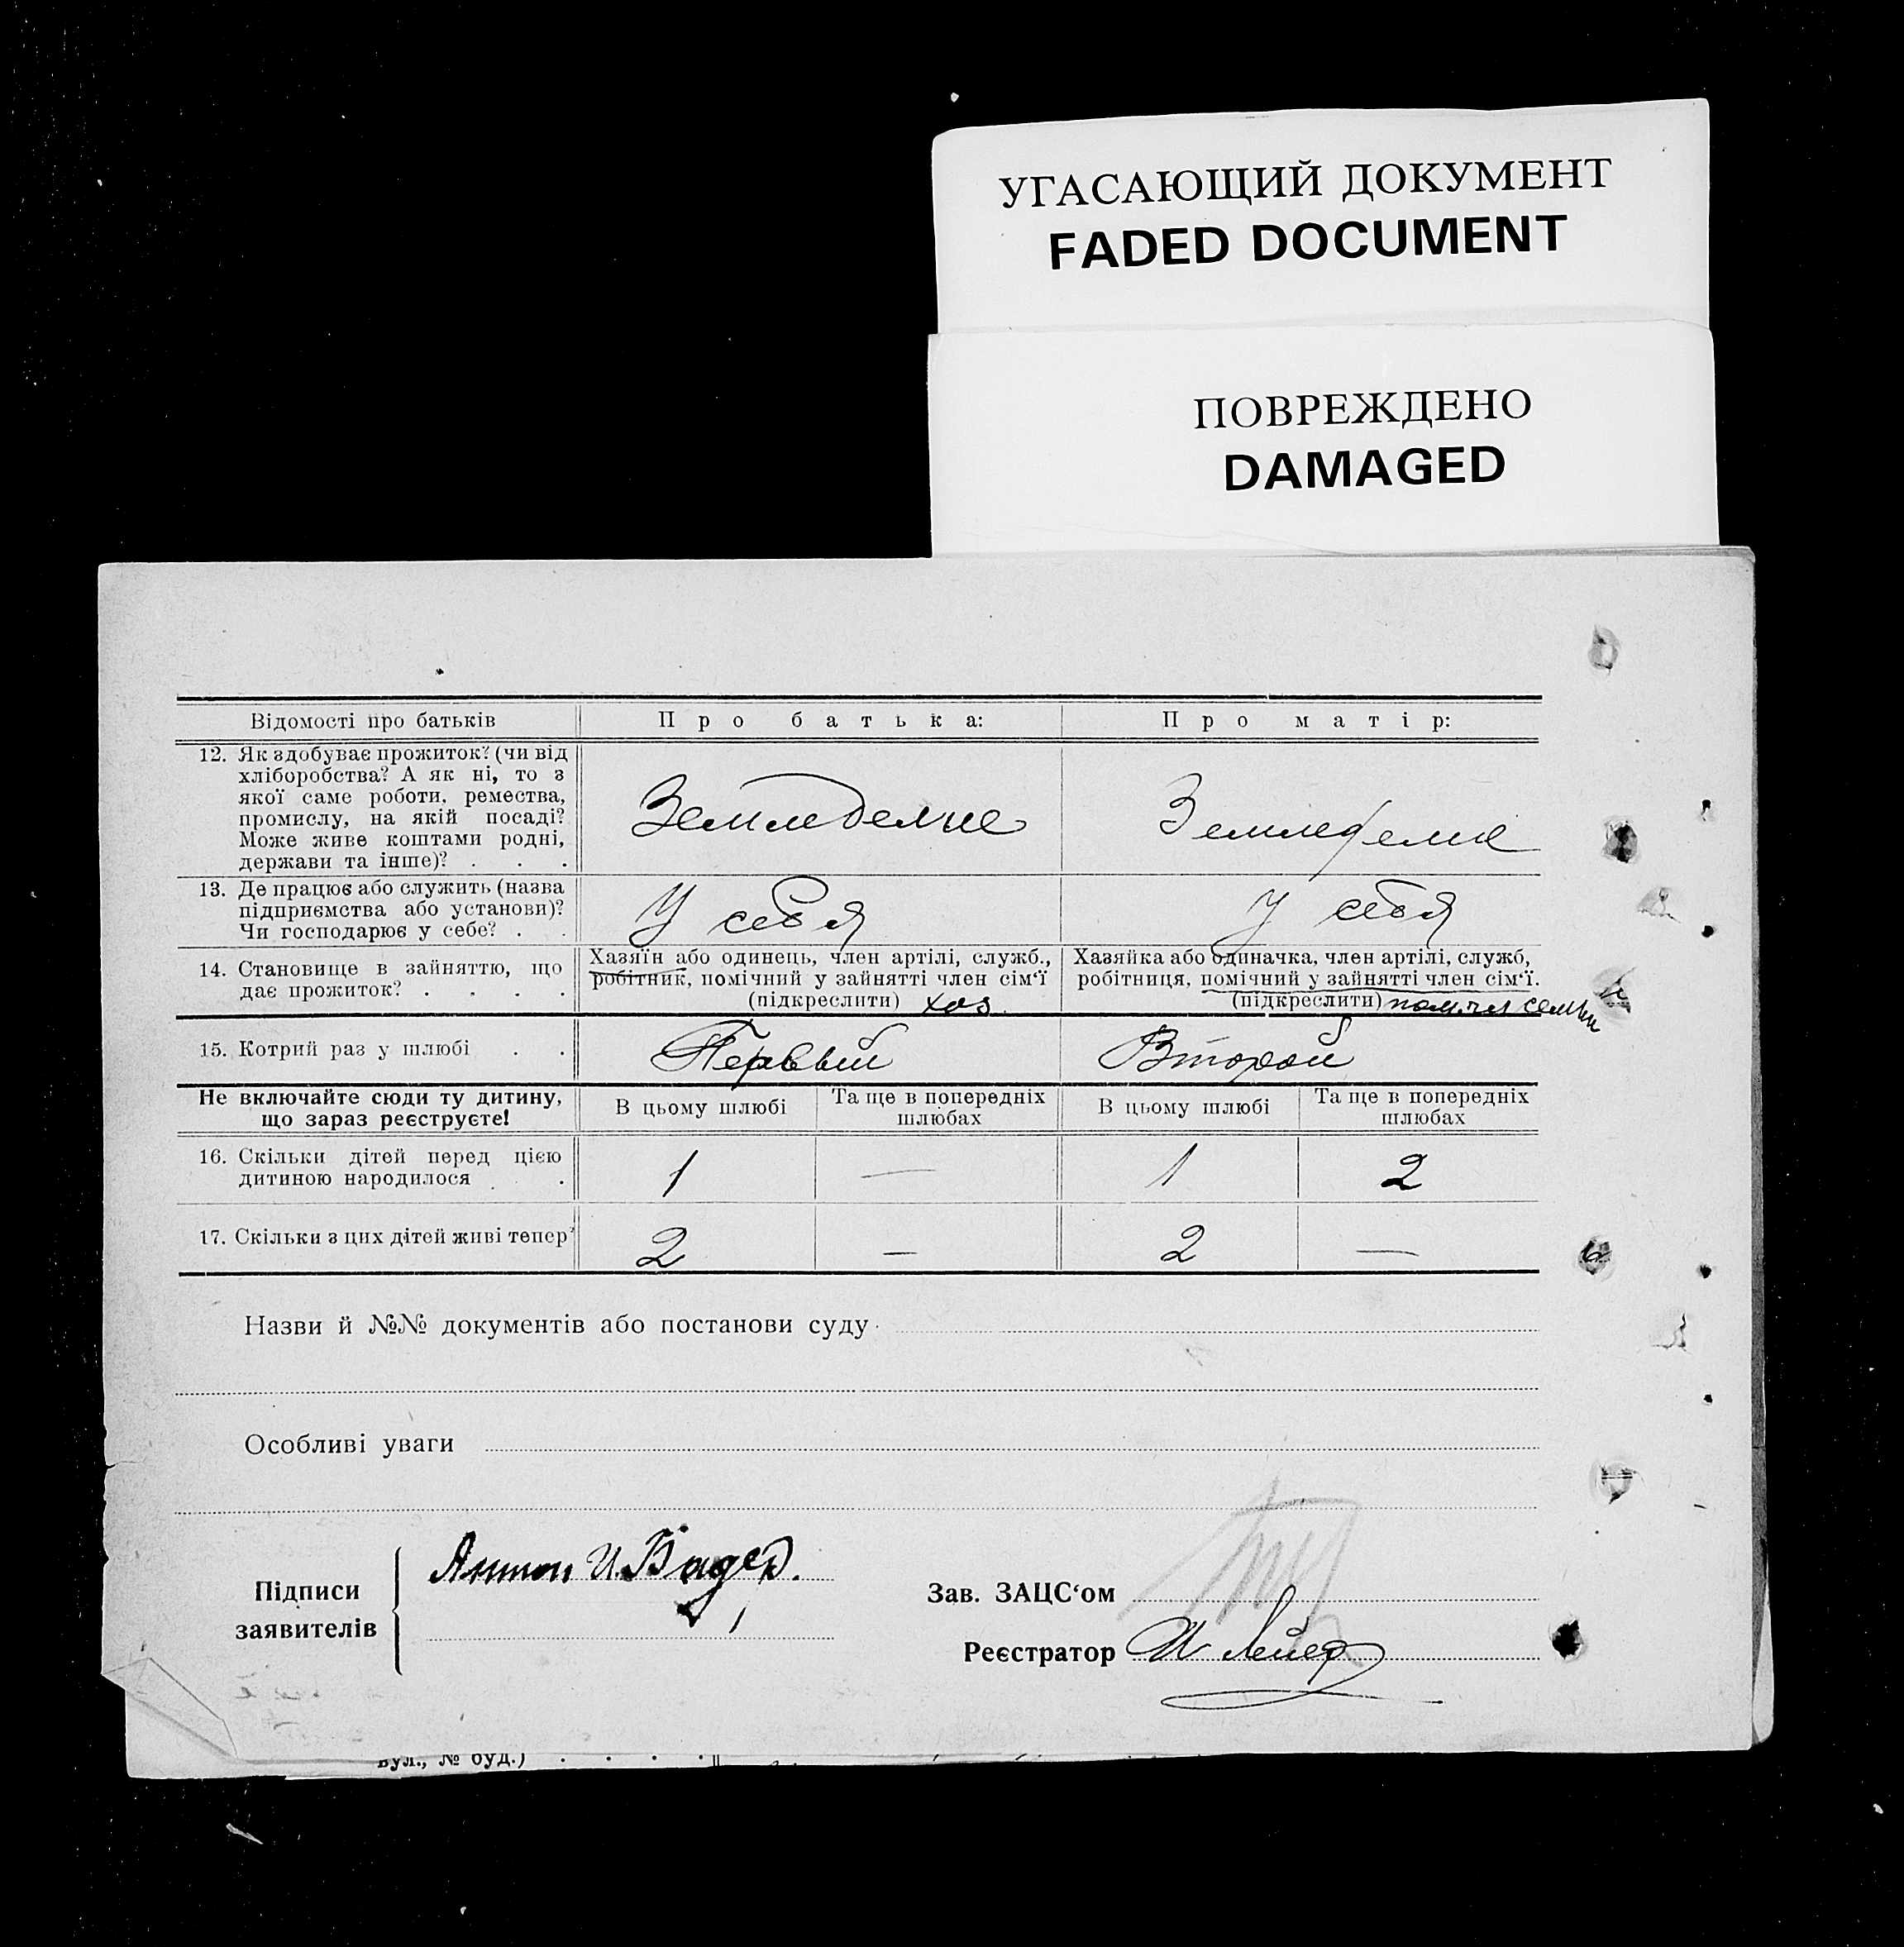 УГАСАЮЩИЙ ДОКУМЕНТ
FADED DOCUMENT
ПОВРЕЖДЕНО
DAMAGED
Відомості про батьків
Про батька:
Про матір:
12. Як здобуває прожиток? (чи від
хліборобства? А як ні, то з
якої саме роботи, ремества,
промислу, на якій посаді?
Може живе коштами родні,
держави та інше)? . . .
Земледелие
Земледелие
13. Де працює або служить (назва
підприємства або установи)?
Чи господарює у себе? . .
У себя
У себя
14. Становище в зайняттю, що
дає прожиток? . . . .
Хазяїн або одинець, член артілі, служб.,
робітник, помічний у зайнятті член сім‘ї
(підкреслити) хоз.
Хазяйка або одиначка, член артілі, служб,
робітниця, помічний у зайнятті член сім‘ї.
(підкреслити) пом. чл семьи
15. Котрий раз у шлюбі . .
Первый
Второй
Не включайте сюди ту дитину,
що зараз реєструєте!
В цьому шлюбі
Та ще в попередніх
шлюбах
В цьому шлюбі
Та ще в попередніх
шлюбах
16. Скільки дітей перед цією
дитиною народилося . .
1
—
1
2
17. Скільки з цих дітей живі тепер?
2
—
2
—
Назви й №№ документів або постанови суду
Особливі уваги
Підписи
заявителів
Антон И. Бадер.
Зав. ЗАЦС‘ом
Реєстратор
вул., № буд.) . . . .